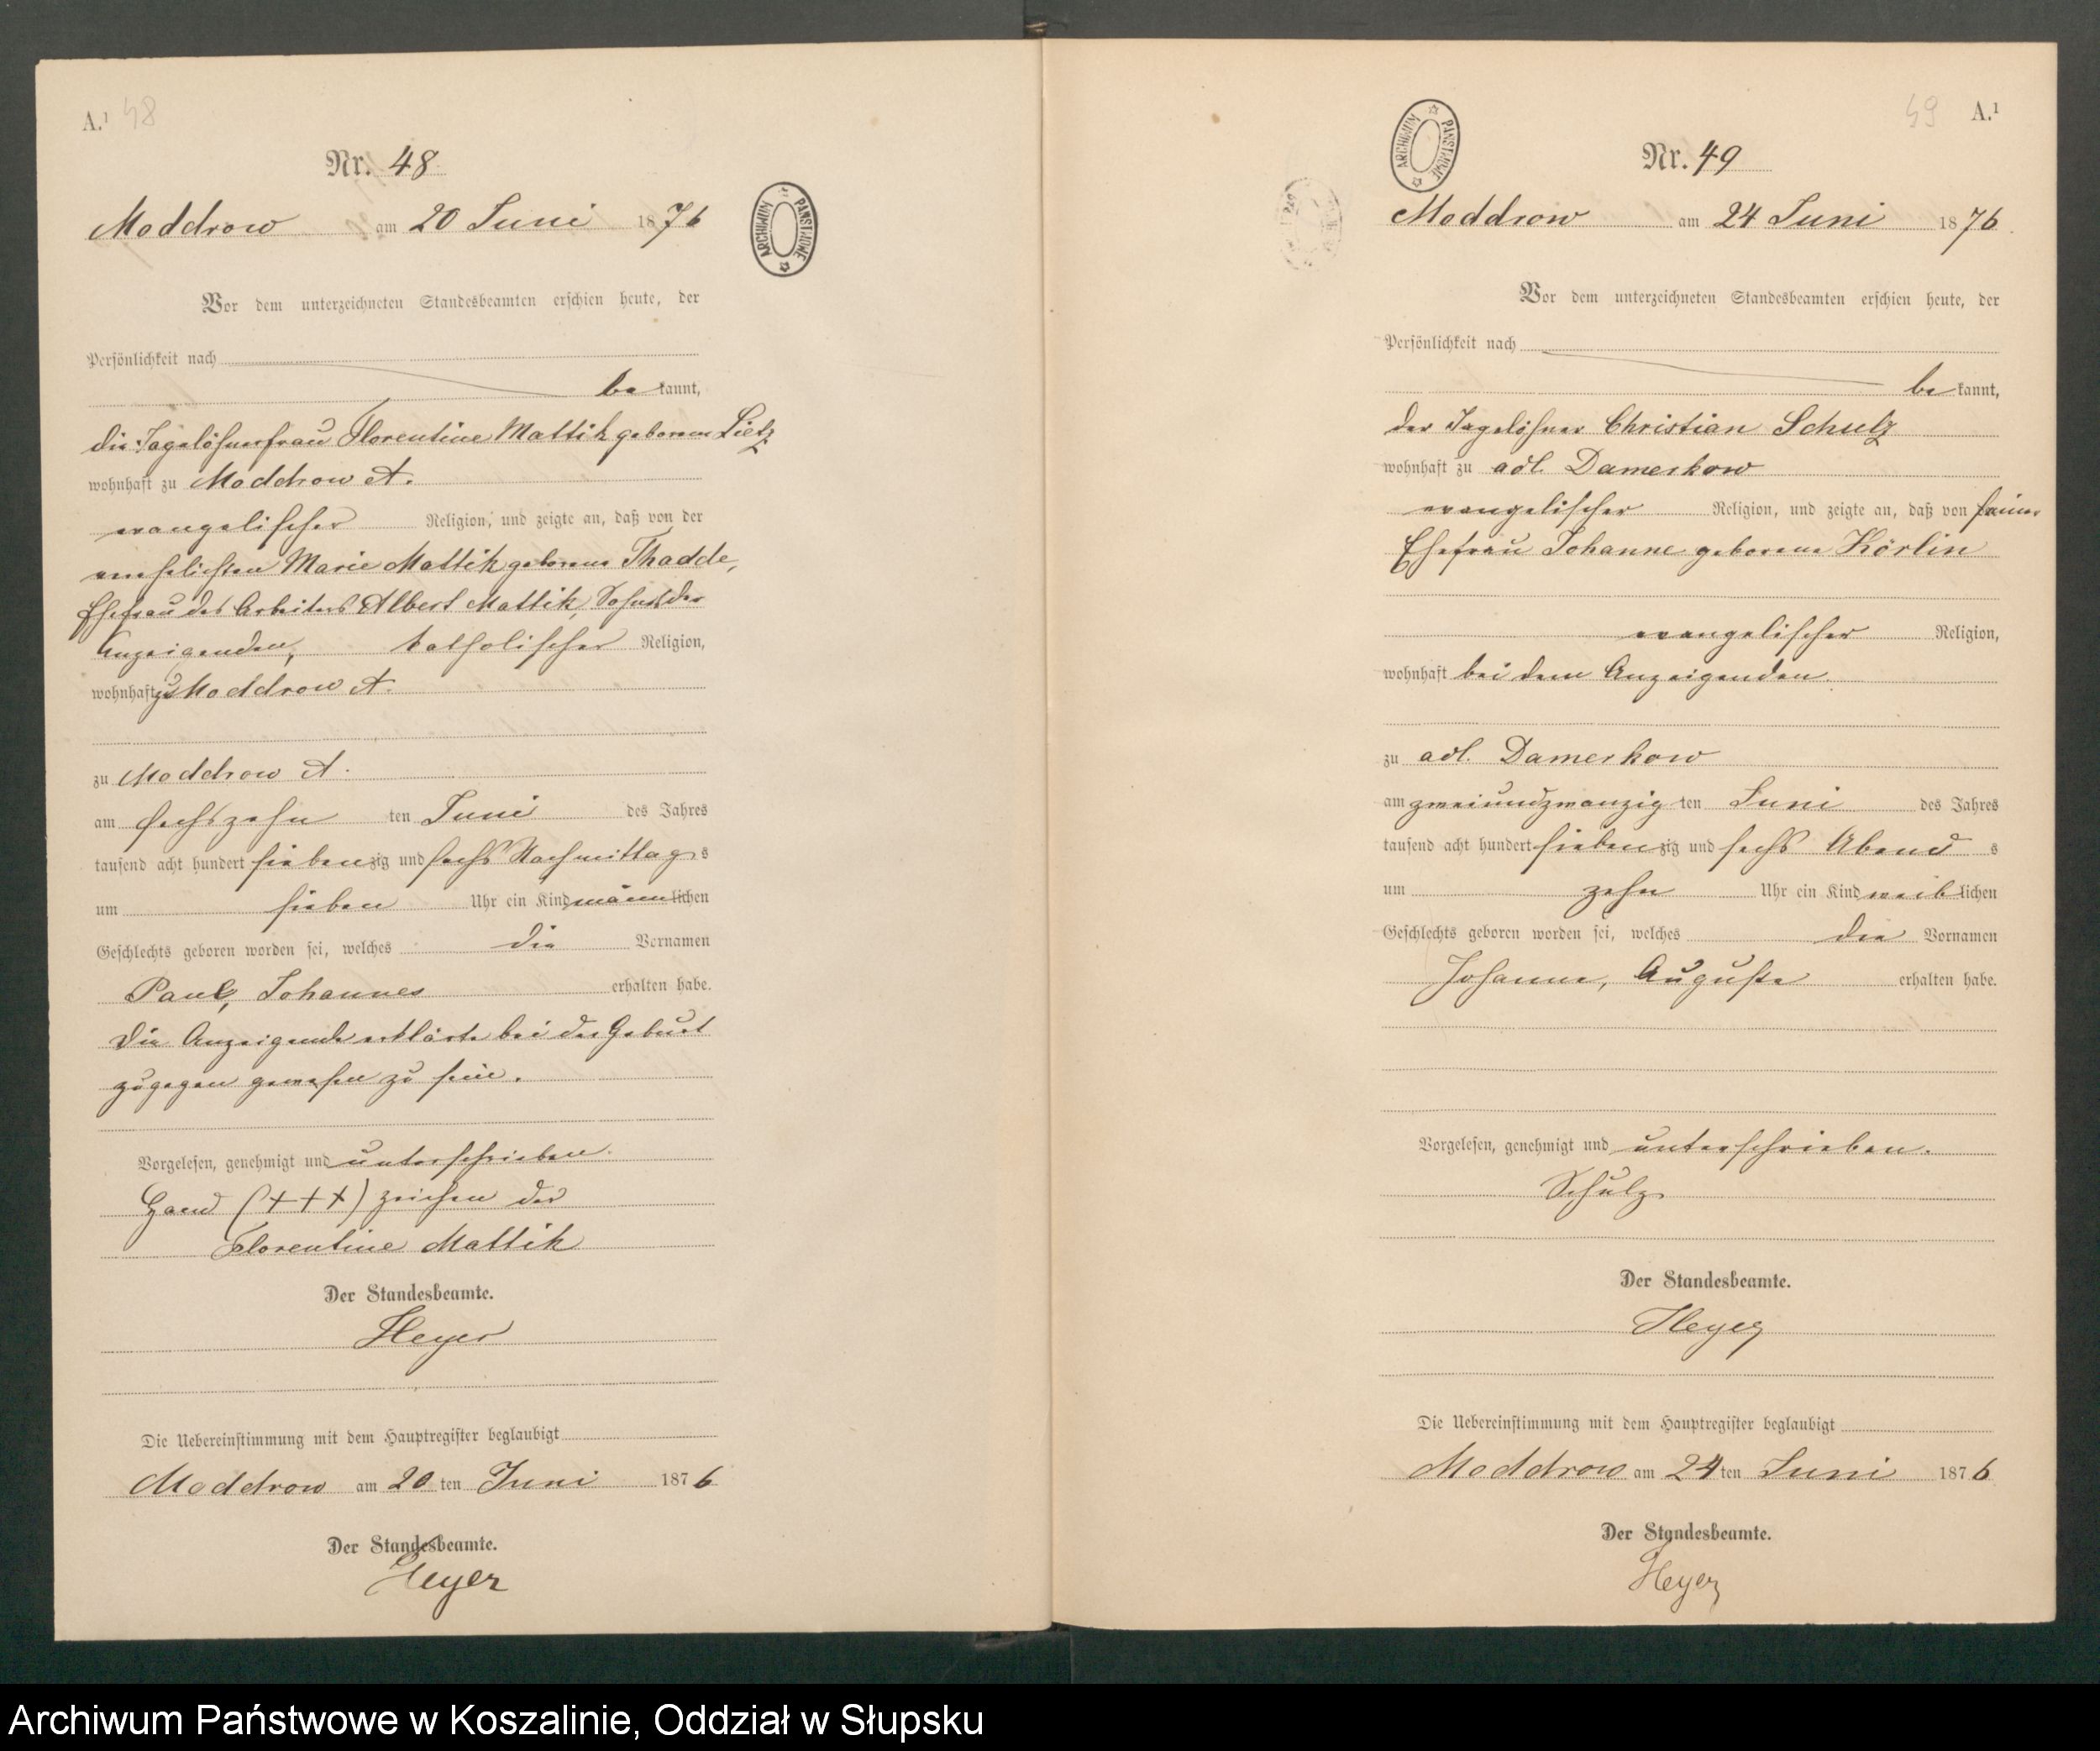 A.¹ 48
Nr. 48
Moddrow am 20 Juni 1876
ARCHIWUM PAŃSTWOWE
Vor dem unterzeichneten Standesbeamten erschien heute, der
Persönlichkeit nach
be kannt,
die Tagelöhnerfrau Florentine Mattik geborene Lietz
wohnhaft zu Moddrow A.
evangelischer Religion, und zeigte an, daß von der
verehelichten Marie Mattik geborene Thadde,
Ehefrau des Arbeiters Albert Mattik, Sohn der
Anzeigenden, katholischer Religion,
wohnhaft zu Moddrow A.
zu Moddrow A.
am sechszehn ten Juni des Jahres
tausend acht hundert siebenzig und sechs Nachmittags
um sieben Uhr ein Kind männlichen
Geschlechts geboren worden sei, welches die Vornamen
Paul, Johannes erhalten habe.
Die Anzeigende erklärte bei der Geburt
zugegen gewesen zu sein.
Vorgelesen, genehmigt und unterschrieben.
Hand (+++) zeichen der
Florentine Mattik
Der Standesbeamte.
Heyer
Die Uebereinstimmung mit dem Hauptregister beglaubigt
Moddrow am 20 ten Juni 1876
Der Standesbeamte.
Heyer
49 A.¹
ARCHIWUM PAŃSTWOWE
Nr. 49
Moddrow am 24 Juni 1876
Vor dem unterzeichneten Standesbeamten erschien heute, der
Persönlichkeit nach
be kannt,
der Tagelöhner Christian Schulz
wohnhaft zu adl. Damerkow
evangelischer Religion, und zeigte an, daß von seiner
Ehefrau Johanne geborene Körlin
evangelischer Religion,
wohnhaft bei dem Anzeigenden
zu adl. Damerkow
am zweiundzwanzig ten Juni des Jahres
tausend acht hundert siebenzig und sechs Abends
um zehn Uhr ein Kind weiblichen
Geschlechts geboren worden sei, welches die Vornamen
Johanne, Auguste erhalten habe.
Vorgelesen, genehmigt und unterschrieben.
Schulz
Der Standesbeamte.
Heyer
Die Uebereinstimmung mit dem Hauptregister beglaubigt
Moddrow am 24 ten Juni 1876
Der Standesbeamte.
Heyer
Archiwum Państwowe w Koszalinie, Oddział w Słupsku